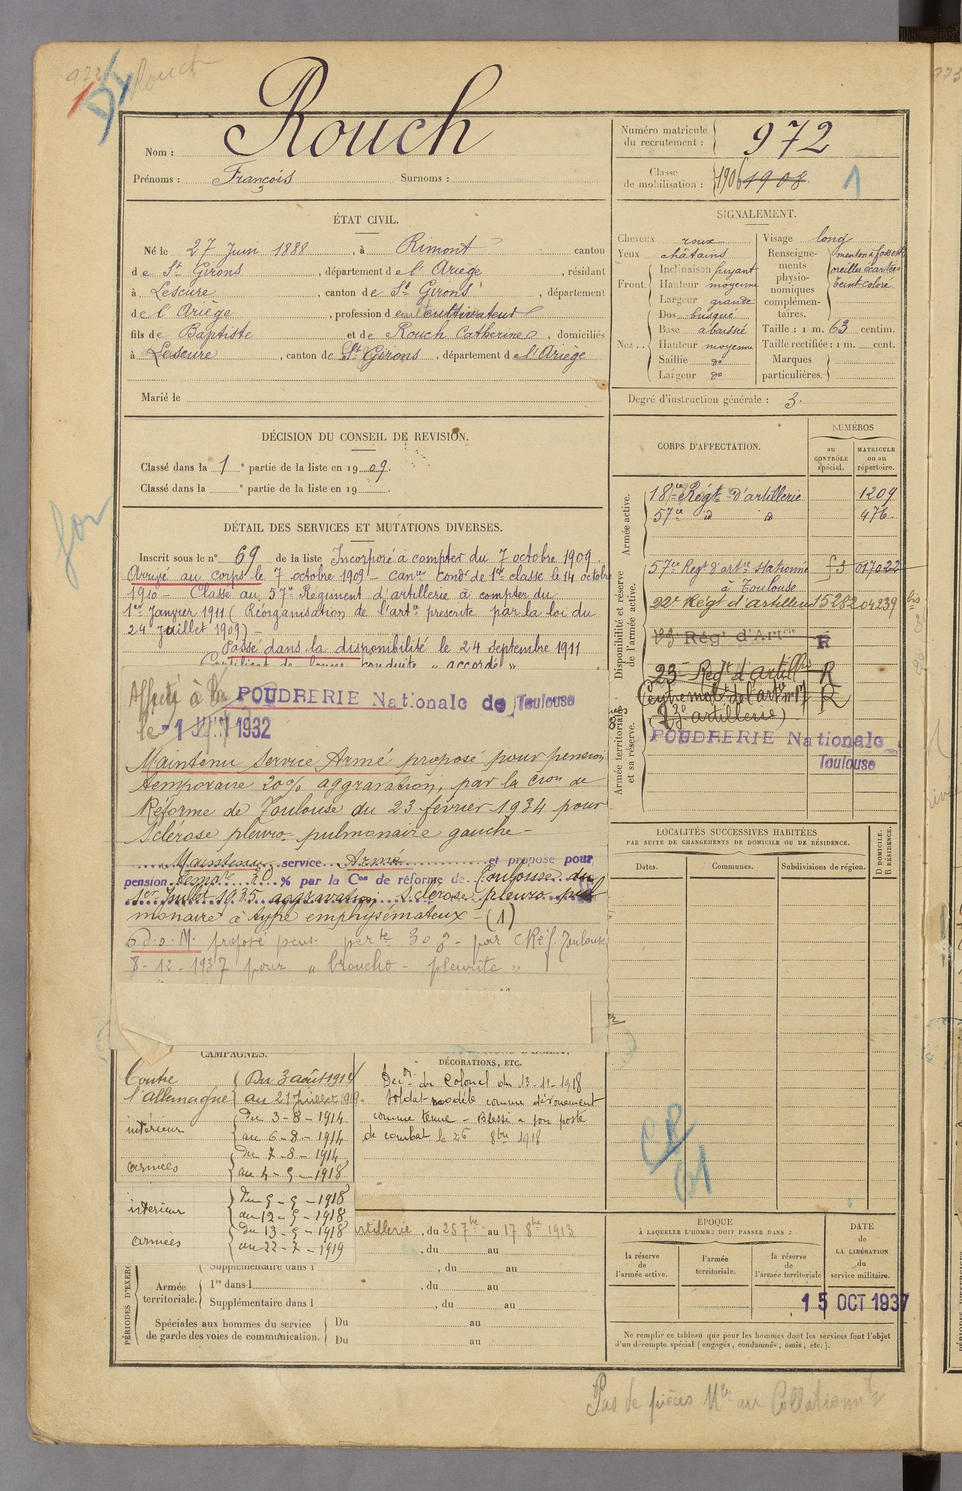 972
Rouch
Nom : Rouch
Prénoms : François Surnoms :
Numéro matricule du recrutement : 972
Classe de mobilisation : 1906 1908 1
ÉTAT CIVIL.
Né le 27 Juin 1888, à Rimont canton
de St Girons, département de l'Ariège, résidant
à Lescure, canton de St Girons, département
de l'Ariège, profession de cultivateur
fils de Baptiste et de Rouch Catherine, domiciliés
à Lescure, canton de St Girons, département de l'Ariège
Marié le
SIGNALEMENT.
Cheveux roux
Yeux châtains
Front. Inclinaison fuyant
Hauteur moyenne
Largeur grande
Nez . . Dos busqué
Base abaissé
Hauteur moyenne
Saillie do
Largeur do
Visage long
Renseignements physionomiques complémentaires. menton à fossette
oreilles écartées
teint coloré
Taille : 1 m. 63 centim.
Taille rectifiée : 1 m. cent.
Marques particulières.
Degré d'instruction générale : 3.
DÉCISION DU CONSEIL DE REVISION.
Classé dans la 1e partie de la liste en 1909.
Classé dans la e partie de la liste en 19 .
DÉTAIL DES SERVICES ET MUTATIONS DIVERSES.
Inscrit sous le n° 69 de la liste Incorporé à compter du 7 octobre 1909.
Arrivé au corps le 7 octobre 1909 – canr condr de 1re classe le 14 octobre
1910 – Classé au 57e Régiment d'artillerie à compter du
1er Janvier 1911 (Réorganisation de l'artie prescrite par la loi du
24 Juillet 1909) –
Passé dans la disponibilité le 24 septembre 1911
Affecté à la POUDRERIE Nationale de Toulouse
le 1 1932
Maintenu Service Armé proposé pour pension
temporaire 20% aggravation, par la Cion de
Réforme de Toulouse du 23 février 1934 pour
Sclérose pleuro-pulmonaire gauche –
Maintenu service Armé et proposé pour
pension tempre 30 % par la Con de réforme de Toulouse du
1er Juillet 1935 aggravation sclérose pleuro pul
monaire à type emphysémateux – (1)
proposé pens. perte 30 % – par CRéf. Toulouse
8-12-1937 pour " broncho - pleurite "
CORPS D'AFFECTATION.
NUMÉROS
au CONTRÔLE spécial.
MATRICULE ou au répertoire.
Armée active.
18me Régt d'artillerie 1209
57me d d 476
Disponibilité et réserve de l'armée active.
57me Regt d'artie Stationné à Toulouse 017022
22e Régt d'artillerie 1528 204239 bis
Régt d'Artrie R
23e Regt d'artillie R
Centre mobre de l'artie n°17 R
(23e artillerie)
Armée territoriale et sa réserve.
POUDRERIE Nationale
Toulouse
LOCALITÉS SUCCESSIVES HABITÉES
PAR SUITE DE CHANGEMENTS DE DOMICILE OU DE RÉSIDENCE.
Dates. Communes. Subdivisions de région. D DOMICILE. R RÉSIDENCE.
CAMPAGNES.
Contre l'allemagne Du 3 août 1914
au 21 Juillet 1919.
intérieur du 3-8-1914
au 6-8-1914
armées du 7-8-1914
au 4-9-1918
intérieur du 5-9-1918
au 12-9-1918
armées du 13-9-1918
au 22-7-1919
DÉCORATIONS, ETC.
du Colonel du 13-11-1918
Soldat modèle comme dévouement
comme tenue – Blessé à son poste
de combat le 26 8bre 1918
artillerie, du 25 7bre au 17 8bre 1913
, du au
Supplémentaire dans l , du au
PÉRIODES D'EXER
Armée territoriale.
1re dans l , du au
Supplémentaire dans l , du au
Spéciales aux hommes du service de garde des voies de communication.
Du au
Du au
CR
61
ÉPOQUE
À LAQUELLE L'HOMME DOIT PASSER DANS :
la réserve de l'armée active.
l'armée territoriale.
la réserve de l'armée territoriale
DATE DE LA LIBÉRATION du service militaire.
15 OCT 1937
Ne remplir ce tableau que pour les hommes dont les services font l'objet
d'un décompte spécial (engagés, condamnés, omis, etc.).
Pas de pièces Mre au Collationnt